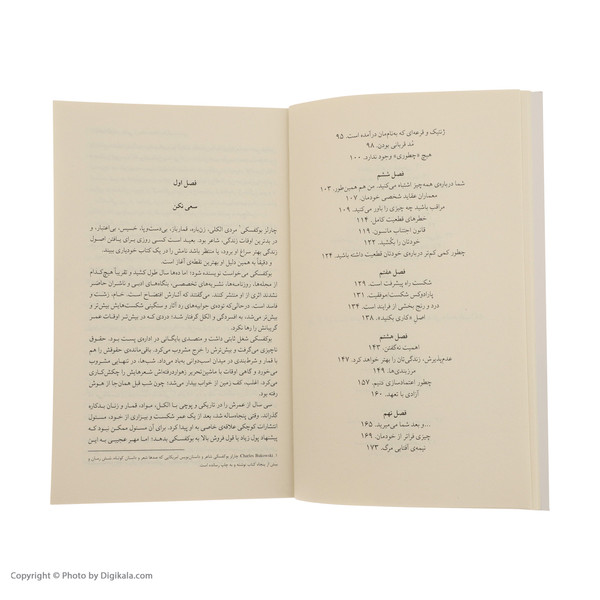 ژنتیک و قرعه‌ای که به‌نام‌مان درآمده است. ۹۵
مُد قربانی بودن. ۹۸
هیچ «چطوری» وجود ندارد. ۱۰۰
فصل ششم
شما درباره‌ی همه‌چیز اشتباه می‌کنید. من هم همین‌طور. ۱۰۳
معماران عقاید شخصی خودمان. ۱۰۷
مراقب باشید چه چیزی را باور می‌کنید. ۱۰۹
خطرهای قطعیت کامل. ۱۱۴
قانون اجتناب مانسون. ۱۱۹
خودتان را بکُشید. ۱۲۲
چطور کمی کم‌تر درباره‌ی خودتان قطعیت داشته باشید. ۱۲۴
فصل هفتم
شکست راه پیشرفت است. ۱۲۹
پارادوکس شکست/موفقیت. ۱۳۱
درد و رنج بخشی از فرایند است. ۱۳۴
اصلِ «کاری بکنید». ۱۳۸
فصل هشتم
اهمیت نه‌گفتن. ۱۴۳
عدم‌پذیرش، زندگی‌تان را بهتر خواهد کرد. ۱۴۷
مرزبندی‌ها. ۱۴۹
چطور اعتمادسازی کنیم. ۱۵۷
آزادی با تعهد. ۱۶۰
فصل نهم
...و بعد شما می‌میرید. ۱۶۵
چیزی فراتر از خودمان. ۱۶۹
نیمه‌ی آفتابی مرگ. ۱۷۳
فصل اول
سعی نکن
چارلز بوکفسکی۱ مردی الکلی، زن‌باره، قمارباز، بی‌دست‌وپا، خسیس، بی‌اعتبار، و
در بدترین اوقات زندگی، شاعر بود. بعید است کسی روزی برای یافتن اصول
زندگی بهتر سراغ او برود، یا منتظر باشد نامش را در یک کتاب خودیاری ببیند.
و دقیقا به همین دلیل او بهترین نقطه‌ی آغاز است.
بوکفسکی می‌خواست نویسنده شود؛ اما ده‌ها سال طول کشید و تقریباً هیچ‌کدام
از مجله‌ها، روزنامه‌ها، نشریه‌های تخصصی، بنگاه‌های ادبی و ناشران حاضر
نشدند اثری از او منتشر کنند. می‌گفتند که آثارش افتضاح است. خام، زشت و
فاسد است. درحالی‌که توده‌ی جوابیه‌های رد آثار و سنگینی شکست‌هایش بیش‌تر و
بیش‌تر می‌شد، به افسردگی و الکل گرفتار شد؛ دردی که در بیش‌تر اوقات عمر
گریبانش را رها نکرد.
بوکفسکی شغل ثابتی داشت و متصدی بایگانی در اداره‌ی پست بود. حقوق
ناچیزی می‌گرفت و بیش‌ترش را خرج مشروب می‌کرد. باقی‌مانده‌ی حقوقش را هم
با قمار و شرط‌بندی در میدان اسب‌دوانی به‌باد می‌داد. شب‌ها، در تنهایی مشروب
می‌خورد و گاهی اوقات با ماشین‌تحریر زهواردررفته‌اش شعرهایش را چکش‌کاری
می‌کرد. اغلب، کف زمین از خواب بیدار می‌شد؛ چون شب قبل همان‌جا از هوش
رفته بود.
سی سال از عمرش را در تاریکی و پوچی با الکل، مواد، قمار و زنان بدکاره
گذراند. وقتی پنجاه‌ساله شد، بعد از یک عمر شکست و بیزاری از خود، مسئول
انتشارات کوچکی علاقه‌ی خاصی به او پیدا کرد. برای آن مسئول ممکن نبود که
پیشنهاد پول زیاد یا قول فروش بالا به بوکفسکی بدهد؛ اما مهر عجیبی به این
۱. Charles Bukowski
Copyright © Photo by Digikala.com